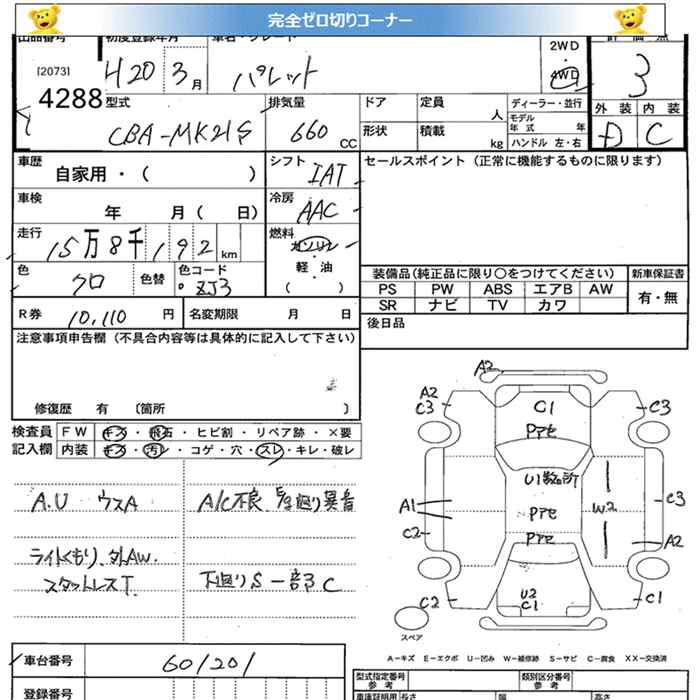 完全ゼロ切りコーナー
出品番号 初度登録年月 車名・グレード 評価点
[2073] H20 3月 パレット 2WD・4WD 3
4288
外装 内装
D C
型式 CBA-MK21S
排気量 660 CC
ドア 定員 人 ディーラー・並行
モデル年式 年式
形状 積載 kg ハンドル 左・右
車歴 自家用・( )
シフト IAT
セールスポイント（正常に機能するものに限ります）
車検 年 月( 日)
冷房 AAC
走行 15万8千192km
燃料 ガソリン・軽油( )
色 クロ 色替 色コード ZJ3
装備品（純正品に限り○をつけてください） 新車保証書
PS PW ABS エアB AW 有・無
SR ナビ TV カワ
R券 10,110円 名変期限 月 日
後日品
注意事項申告欄（不具合内容等は具体的に記入して下さい）
修復歴 有 〔箇所 〕
検査員記入欄
FW キズ・飛石・ヒビ割・リペア跡・×要
内装 キズ・汚レ・コゲ・穴・スレ・キレ・破レ
A.U ウスA
A/C不良、F/S廻り異音
ライトくもり、外AW.
スタットレスT.
下廻りS 一部C
A2
A2
C3
C1
C3
アセ
U1数ヶ所
A1
アセ
W2
C3
C2
アセ
A2
C2
U2
C1
C1
スペア
A－キズ E－エクボ U－凹み W－補修跡 S－サビ C－腐食 XX－交換済
車台番号 601201
型式指定番号 参考 類別区分番号 参考
登録番号
車庫証明用 参考 長さ 幅 高さ